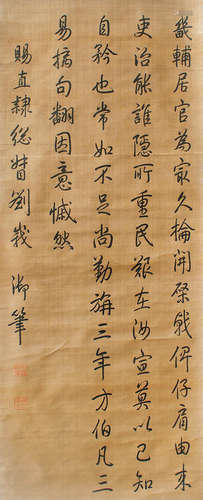 畿輔居官為家久掄開棨戟俾仔肩由来
吏治能誰隱所重民艱在汝宣莫以已知
自矜也常如不足尚勤旃三年方伯凡三
易摛句翻因意憾然
賜直隸總督劉峩 御筆